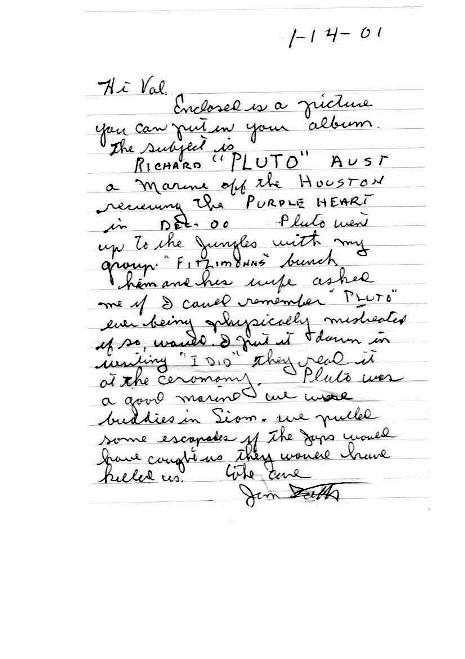 1-14-01
Hi Val
Enclosed is a picture
you can put in your album.
The subject is
RICHARD "PLUTO" AUST
a Marine off the HOUSTON
recieving the PURPLE HEART
in DEC- 00 Pluto went
up to the jungles with my
group "FITZIMONNS" bunch
him and his wife asked
me if I could remember "PLUTO"
ever being physically mistreated
if so, would I put it down in
writing "I DID" they read it
at the ceromony. Pluto was
a good marine we were
buddies in Siam. we pulled
some escapades if the Japs would
have caught us they would have
killed us. Take care
Jim